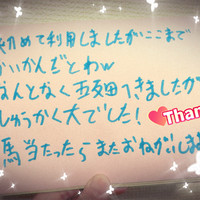 初めて利用しましたがここまで
かいかんだとわw
なんとなく五反田へきましたが
しゅうかく大でした!
Than
馬当たったらまたおねがいしま